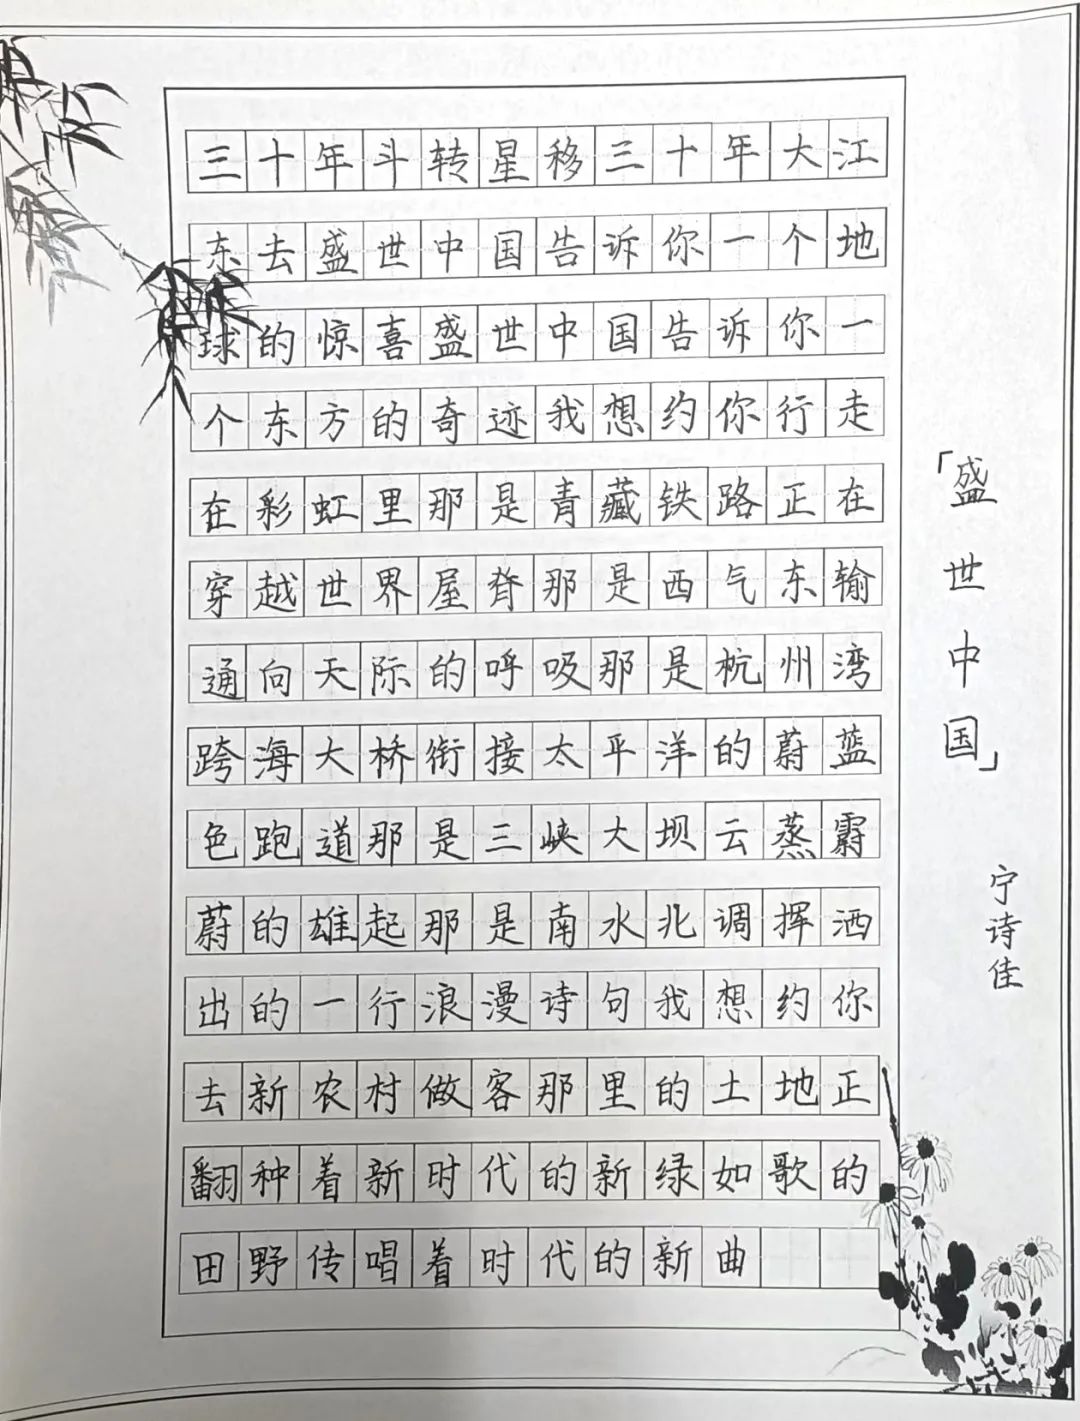 三十年斗转星移三十年大江
东去盛世中国告诉你一个地
球的惊喜盛世中国告诉你一
个东方的奇迹我想约你行走
在彩虹里那是青藏铁路正在
穿越世界屋脊那是西气东输
通向天际的呼吸那是杭州湾
跨海大桥衔接太平洋的蔚蓝
色跑道那是三峡大坝云蒸霨
蔚的雄起那是南水北调挥洒
出的一行浪漫诗句我想约你
去新农村做客那里的土地正
翻种着新时代的新绿如歌的
田野传唱着时代的新曲
「盛世中国」
宁诗佳